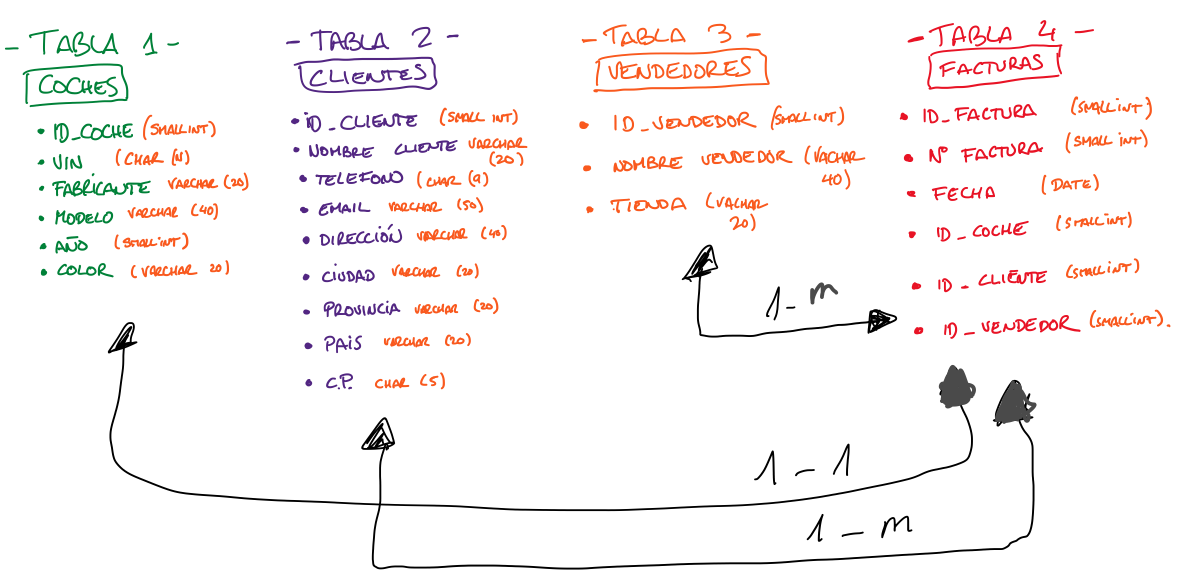 - TABLA 1 -
COCHES
• ID_COCHE (SMALLINT)
• VIN (CHAR (17)
• FABRICANTE VARCHAR (20)
• MODELO VARCHAR (40)
• AÑO (SMALLINT)
• COLOR (VARCHAR 20)
- TABLA 2 -
CLIENTES
• ID_CLIENTE (SMALL INT)
• NOMBRE CLIENTE VARCHAR
(20)
• TELEFONO (CHAR (9)
• EMAIL VARCHAR (50)
• DIRECCIÓN VARCHAR (40)
• CIUDAD VARCHAR (20)
• PROVINCIA VARCHAR (20)
• PAIS VARCHAR (20)
• C.P. CHAR (5)
- TABLA 3 -
VENDEDORES
• ID_VENDEDOR (SMALLINT)
• NOMBRE VENDEDOR (VACHAR
40)
• TIENDA (VACHAR
20)
- TABLA 4 -
FACTURAS
• ID_FACTURA (SMALLINT)
• Nº FACTURA (SMALL INT)
• FECHA (DATE)
• ID_COCHE (SMALLINT)
• ID_CLIENTE (SMALLINT)
• ID_VENDEDOR (SMALLINT).
1-m
1-1
1-m